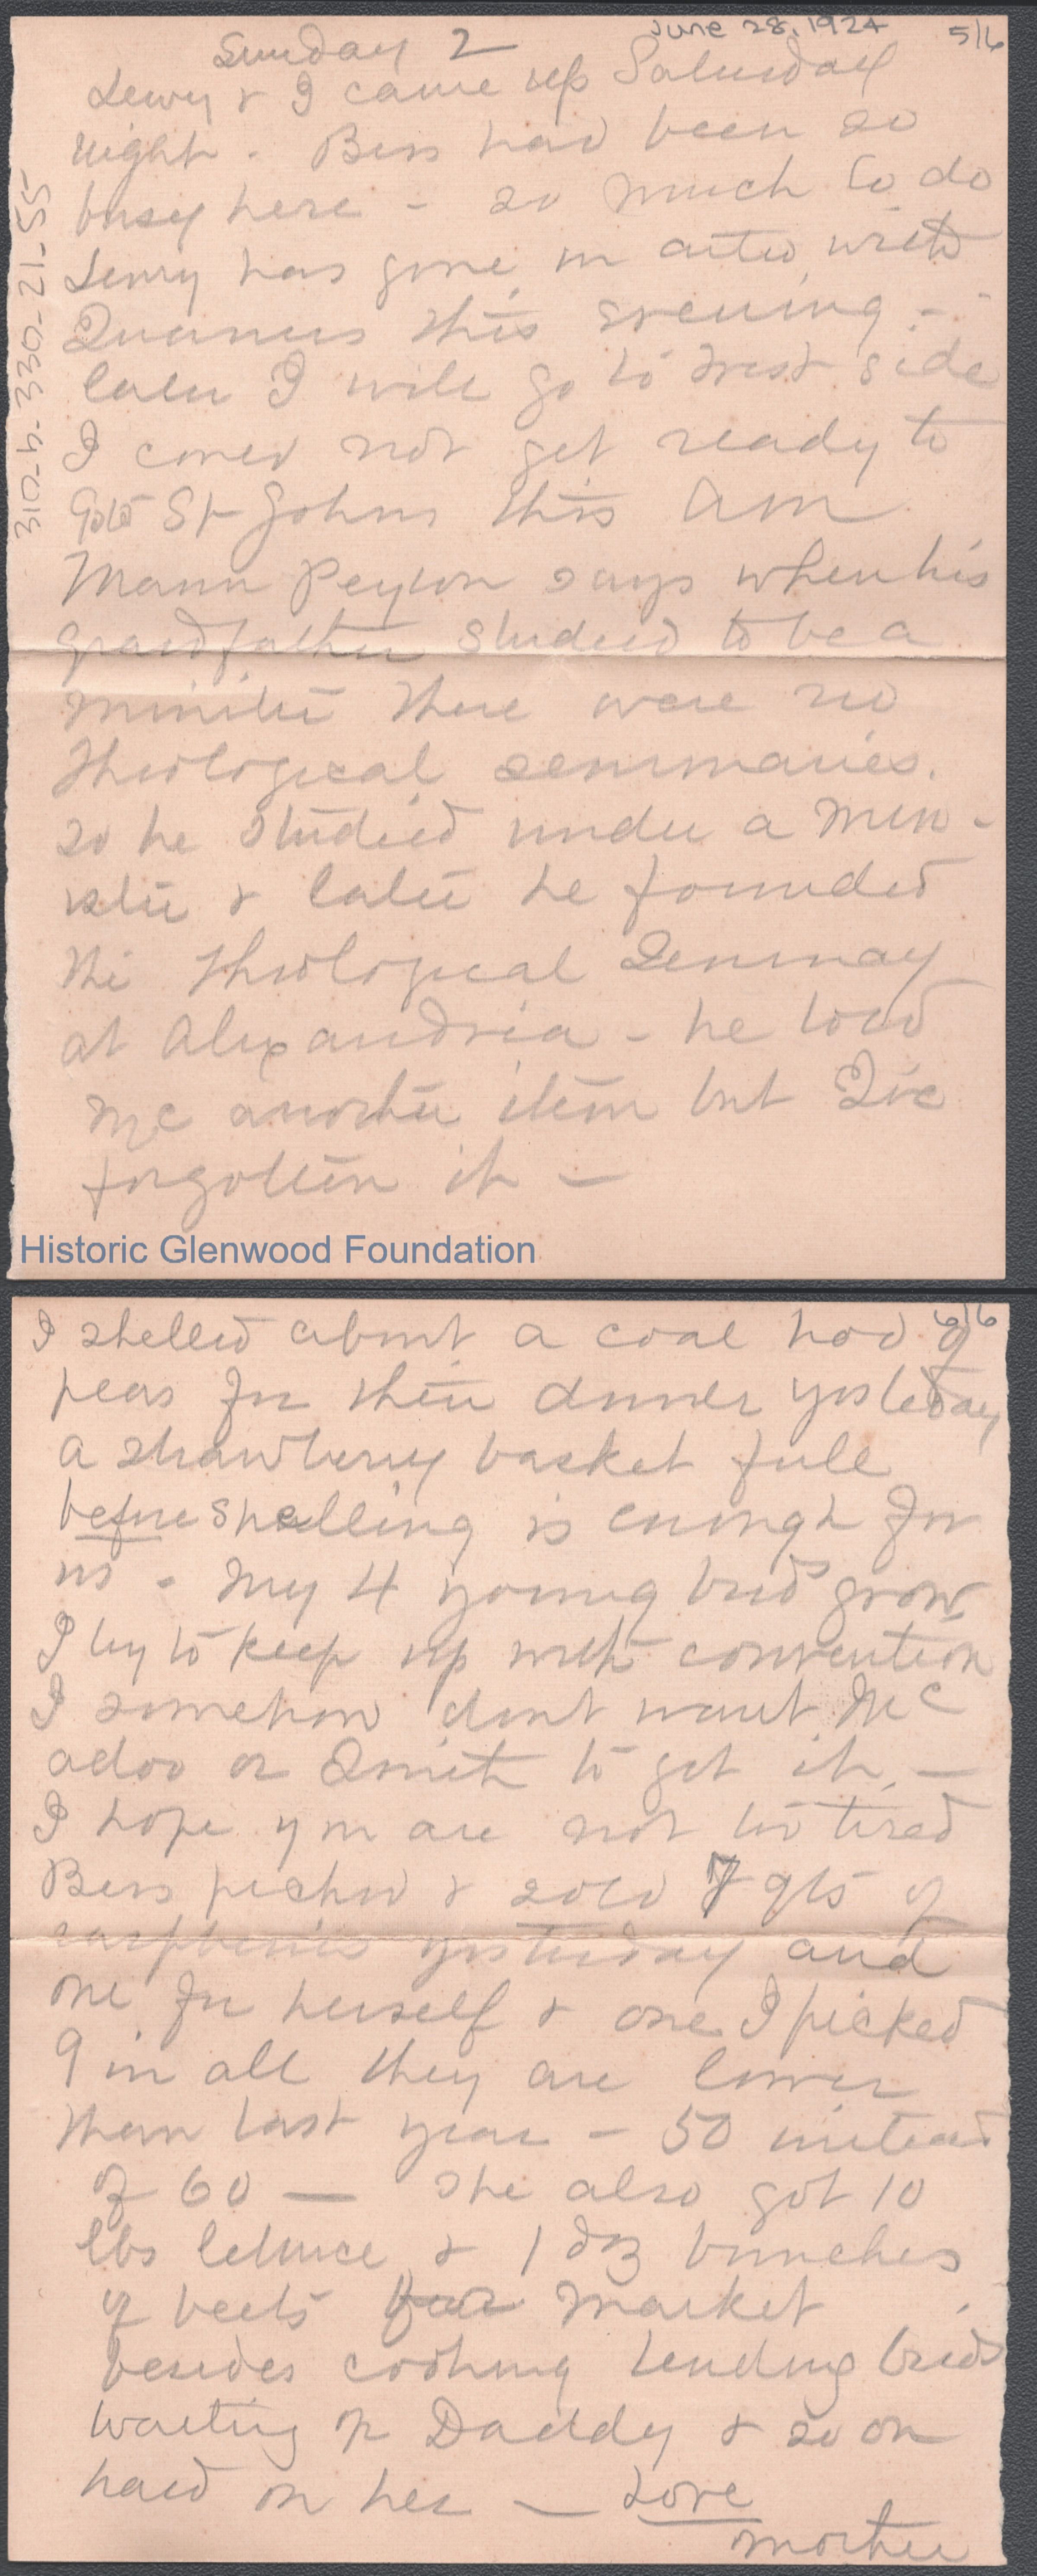 June 28, 1924 5/6
Sunday 2
Lewy & I came up Saturday
night - Bess had been so
busy here - so much to do
Lewy has gone in auto with
this evening -
later I will go to west side
I could not get ready to
go to St Johns this Am
Mann Peyton says when his
grandfather studied to be a
minister there were no
Theological seminaries.
so he studied under a min -
ister & later he founded
the Theological Seminary
at Alexandria - he told
me another item but I've
forgotten it -
310-h-330-21-55
Historic Glenwood Foundation
6/6
I shelled about a coal hod of
peas for their dinner yesterday
a strawberry basket full
before shelling is enough for
us - My 4 young birds grow
I try to keep up with convention
I somehow dont want Mc
adoo or Smith to get it -
I hope you are not too tired
Bess picked & sold 7 qts of
raspberries yesterday and
one for herself & one I picked
9 in all they are lower
than last year - 50 instead
of 60 - She also got 10
lbs lettuce & 1 doz bunches
of beets for market
besides cooking tending birds
waiting on Daddy & so on
hard on her - Love
Mother